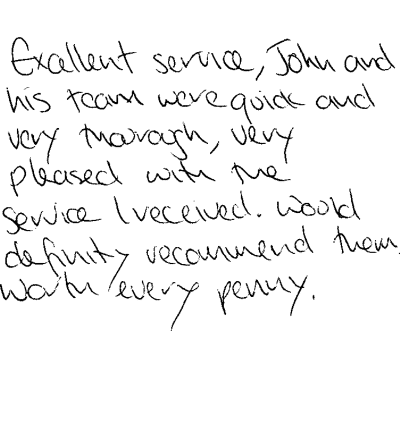 Excellent service, John and
his team were quick and
very thorough, very
pleased with the
service I received. Would
definity recommend them,
worth every penny.